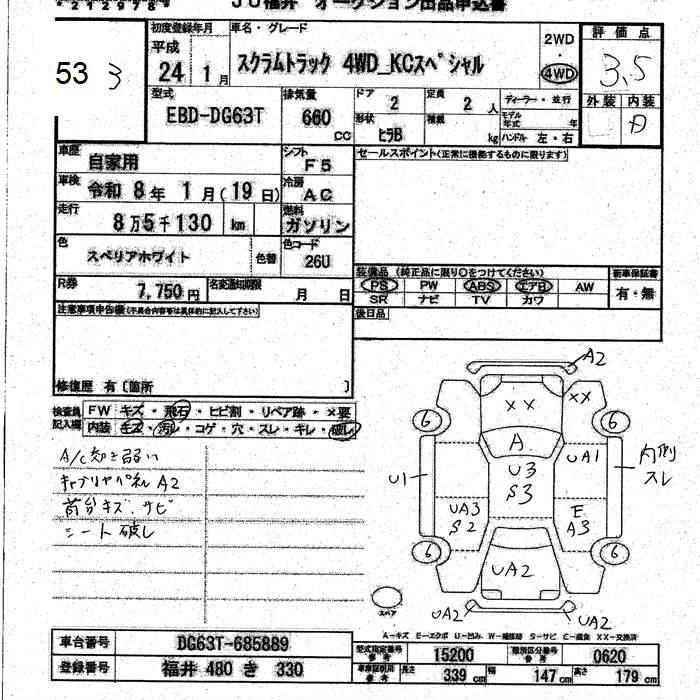 JU福井 オークション出品申込書
53 3
初度登録年月
平成
24 1月
車名・グレード
スクラムトラック 4WD_KCスペシャル
2WD
・
4WD
評価点
3.5
外装 内装
A
型式
EBD-DG63T
排気量
660
CC
ドア
2
定員
2 人
形状
ヒラB
積載
kg
ディーラー・並行
モデル年式 年
ハンドル 左・右
車歴
自家用
シフト
F5
車検
令和 8年 1月(19日)
冷房
AC
走行
8万5千130 km
燃料
ガソリン
色
スペリアホワイト
色替
色コード
26U
R券
7,750円
名変通知期限
月 日
セールスポイント(正常に機能するものに限ります)
装備品(純正品に限り○をつけてください)
新車保証書
PS PW ABS エアB AW
SR ナビ TV カワ
有・無
後日品
注意事項申告欄(不具合内容等は具体的に記入して下さい)
修復歴 有〔箇所 〕
検査員記入欄
FW キズ・飛石・ヒビ割・リペア跡・×要
内装 キズ・汚レ・コゲ・穴・スレ・キレ・破レ
A/C 効き弱い
キャブリヤパネル A2
荷台キズ、サビ
シート破レ
A2
XX XX
6 6
A
U1 U3 UA1 内側スレ
S3
UA3 E
S2 A3
6 6
UA2
スペア
UA2 UA2
A-キズ E-エクボ U-凹み W-補修跡 S-サビ C-腐食 XX-交換済
車台番号 DG63T-685889
登録番号 福井 480 き 330
型式指定番号 参考 15200
類別区分番号 参考 0620
車庫証明用 参考 長さ 339 cm 幅 147 cm 高さ 179 cm